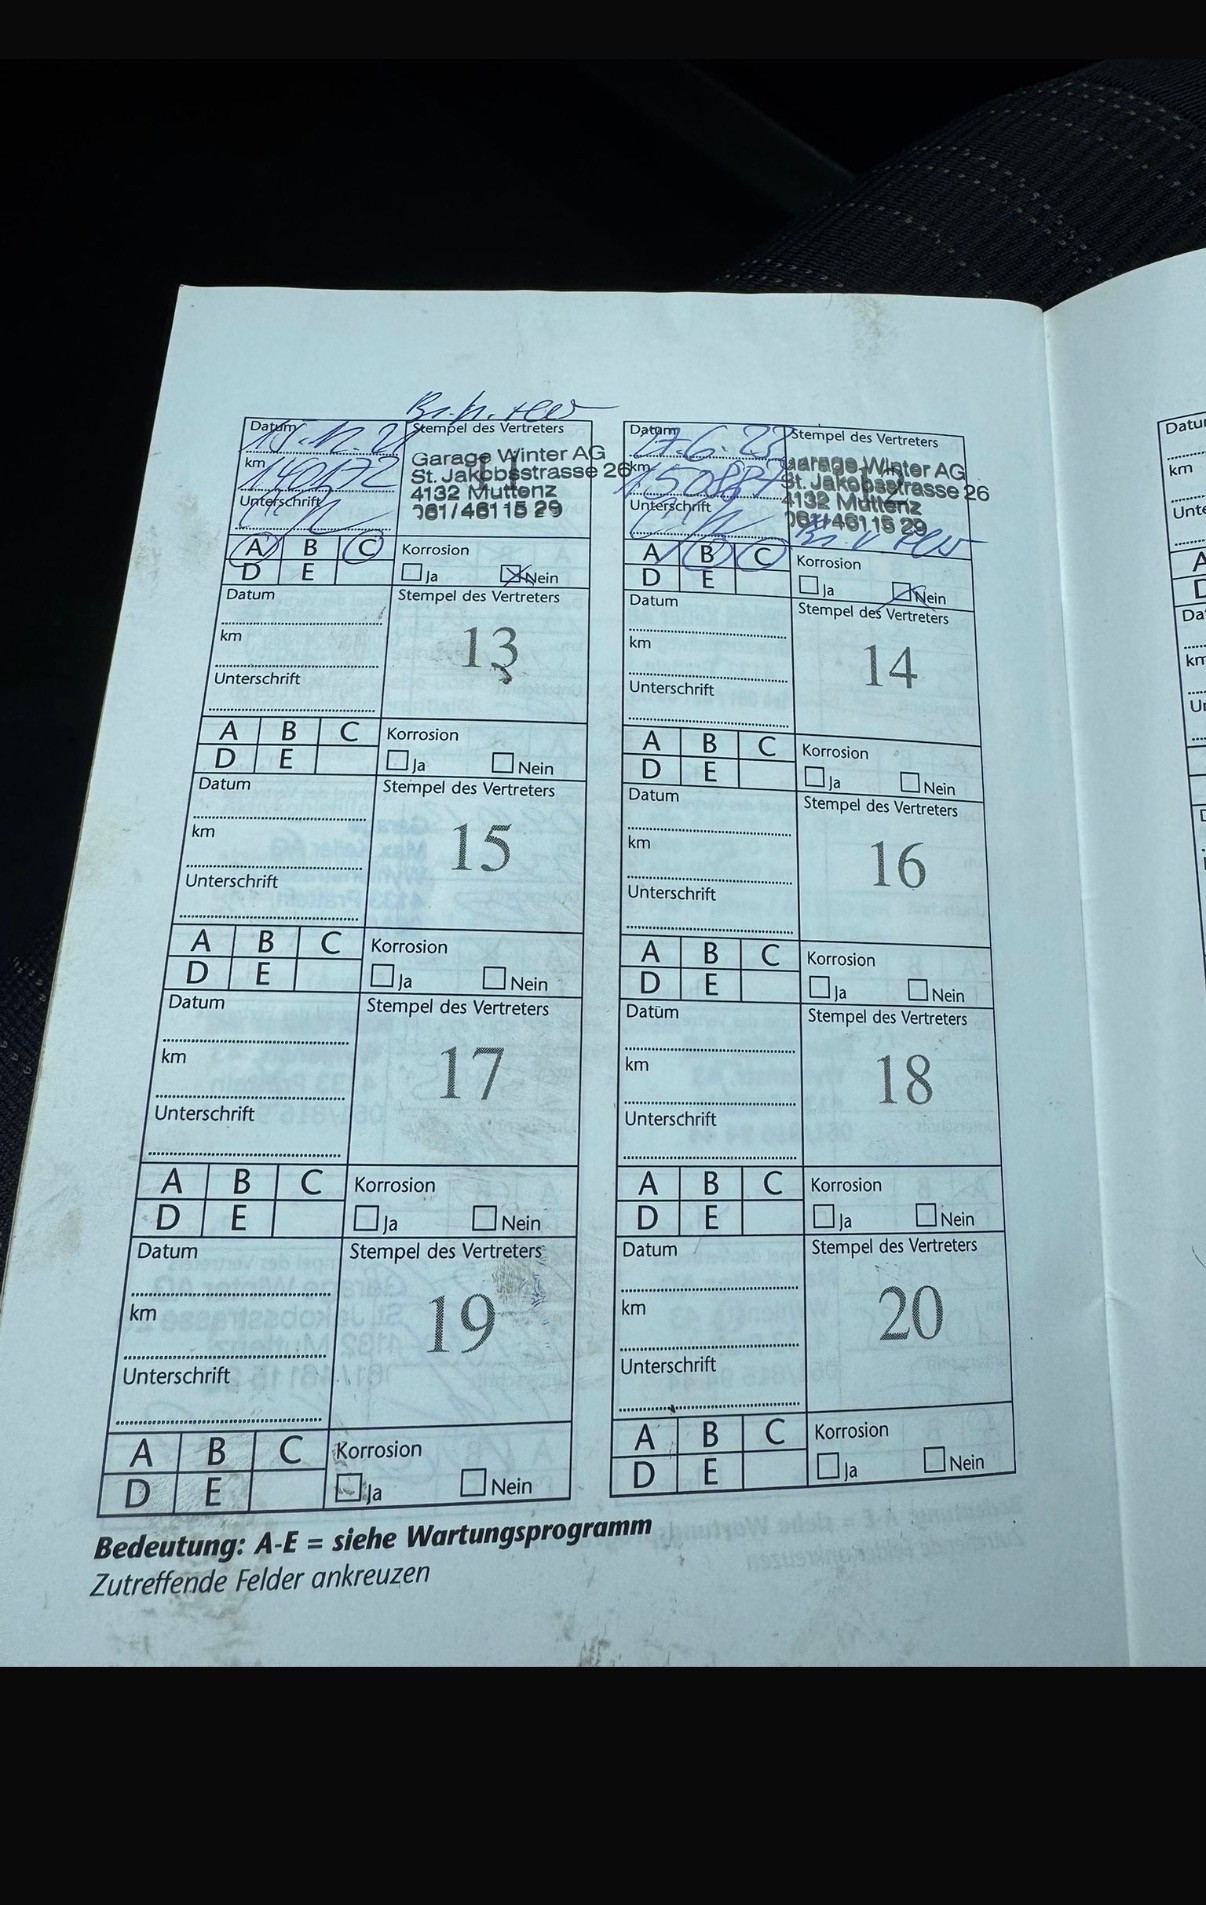 Datum
Stempel des Vertreters
km 140172
Garage Winter AG
St. Jakobsstrasse 26
4132 Muttenz
061/461 15 29
Unterschrift
A B C
D E
Korrosion
Ja Nein
Datum 27.6.23
Stempel des Vertreters
km
Garage Winter AG
St. Jakobsstrasse 26
4132 Muttenz
061/461 15 29
Unterschrift
A B C
D E
Korrosion
Ja Nein
Datum
Stempel des Vertreters
km
13
Unterschrift
A B C
D E
Korrosion
Ja Nein
Datum
Stempel des Vertreters
km
14
Unterschrift
A B C
D E
Korrosion
Ja Nein
Datum
Stempel des Vertreters
km
15
Unterschrift
A B C
D E
Korrosion
Ja Nein
Datum
Stempel des Vertreters
km
16
Unterschrift
A B C
D E
Korrosion
Ja Nein
Datum
Stempel des Vertreters
km
17
Unterschrift
A B C
D E
Korrosion
Ja Nein
Datum
Stempel des Vertreters
km
18
Unterschrift
A B C
D E
Korrosion
Ja Nein
Datum
Stempel des Vertreters
km
19
Unterschrift
A B C
D E
Korrosion
Ja Nein
Datum
Stempel des Vertreters
km
20
Unterschrift
A B C
D E
Korrosion
Ja Nein
Bedeutung: A-E = siehe Wartungsprogramm
Zutreffende Felder ankreuzen
km